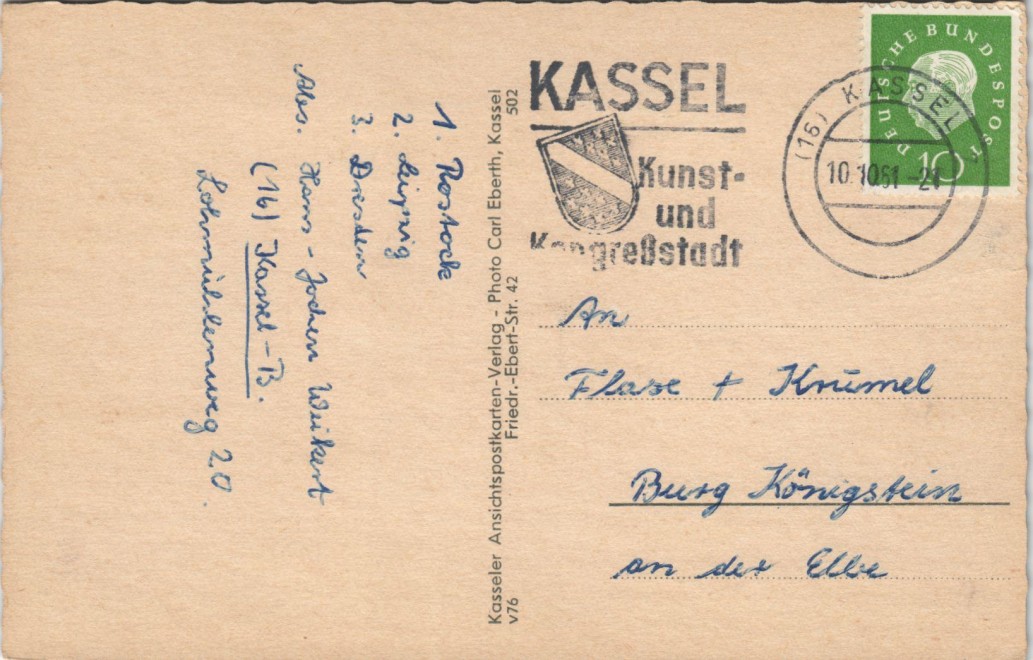 1. Rostock
2. Leipzig
3. Dresden
Abs. Hans-Jochen Weikert
(16) Kassel-B.
Lohmühlenweg 20.
Kasseler Ansichtspostkarten-Verlag - Photo Carl Eberth, Kassel
v76 Friedr.-Ebert-Str. 42 502
KASSEL
Kunst-
und
Kongreßstadt
(16) KASSEL
10.10.61-21
DEUTSCHE BUNDESPOST
10
An
Flaxe + Krümel
Burg Königstein
an der Elbe